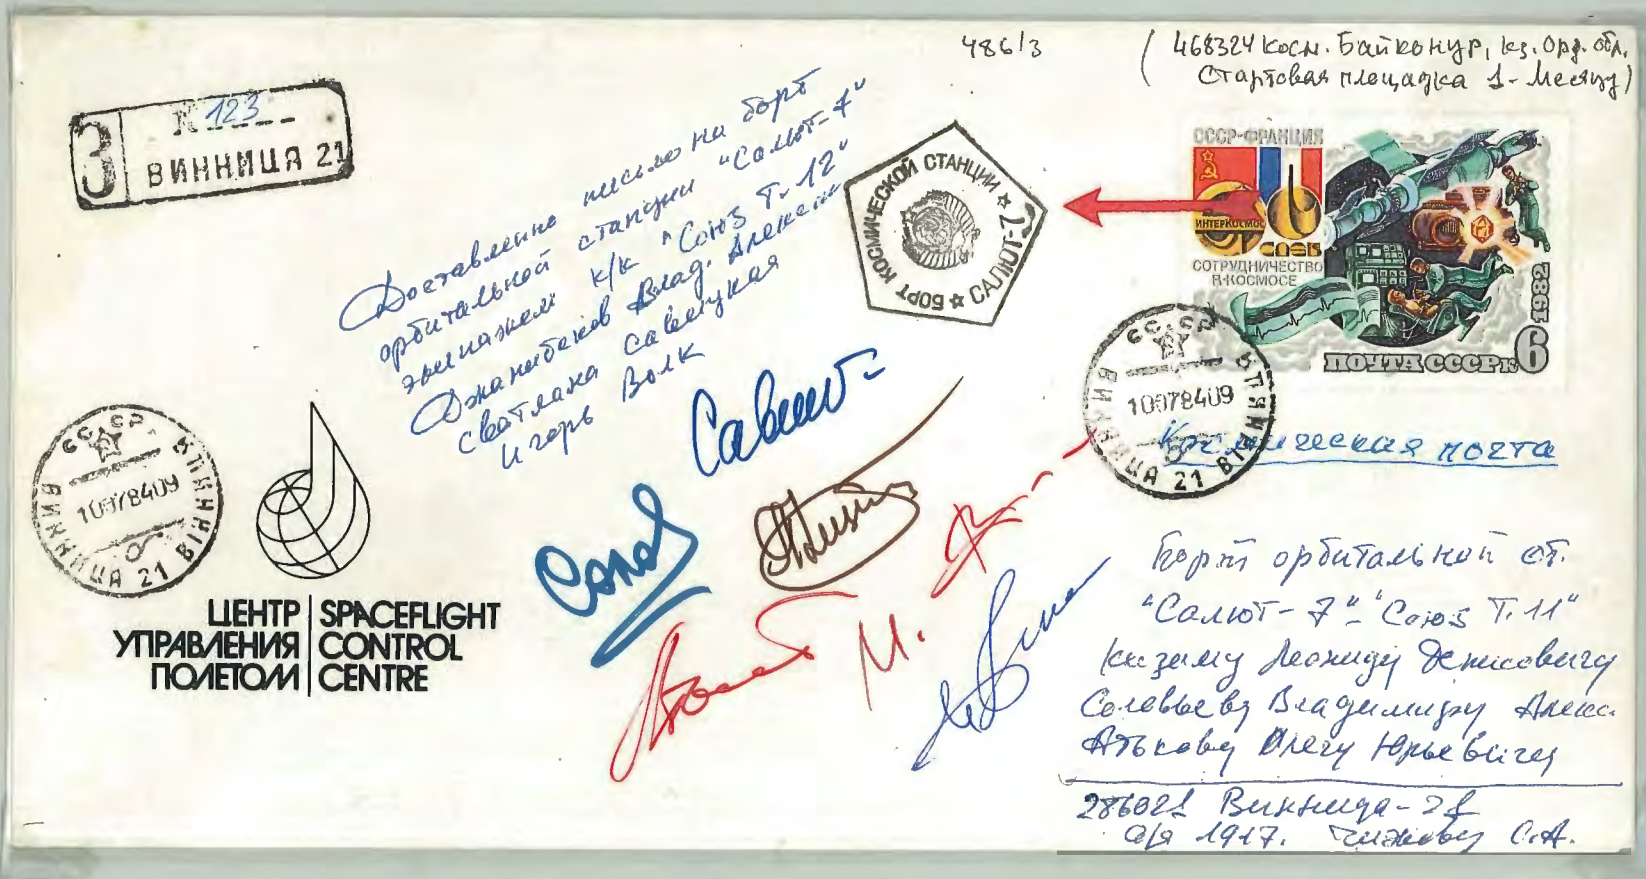 486/3
(468324 Косм. Байконур, кз. Орд. обл.
Стартовая площадка 1-Месяцу)
З
№ 123
ВИННИЦА 21
Доставлено письмо на борт
орбитальной станции "Салют-7"
экипажем к/к "Союз Т-12"
Джанибеков Влад. Алексан
Светлана Савицкая
Игорь Волк
БОРТ КОСМИЧЕСКОЙ СТАНЦИИ ★ САЛЮТ-7 ★
СССР-ФРАНЦИЯ
ИНТЕРКОСМОС
СОТРУДНИЧЕСТВО
В КОСМОСЕ
1982
ПОЧТА СССР к 6
СССР
ВИННИЦА 21 ВІННИЦЯ
10078409
Космическая почта
СССР
ВИННИЦА 21 ВІННИЦЯ
10078409
ЦЕНТР УПРАВЛЕНИЯ ПОЛЕТОМ
SPACEFLIGHT CONTROL CENTRE
Борт орбитальной ст.
"Салют-7"-"Союз Т.11"
Кизиму Леониду Денисовичу
Соловьеву Владимиру Алекс.
Атькову Олегу Юрьевичу
286021 Винница-21
а/я 1917. Чижову С.А.